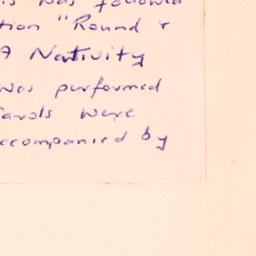 is was followed
tion "Round &
A Nativity
was performed
Carols were
accompanied by